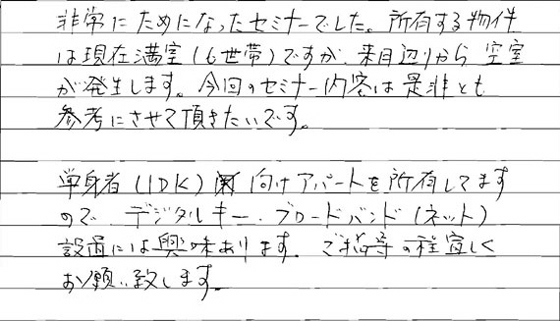 非常にためになったセミナーでした。所有する物件
は現在満室（6世帯）ですが、来月辺りから空室
が発生します。今回のセミナー内容は是非とも
参考にさせて頂きたいです。
単身者（1DK）向けアパートを所有してます
ので、デジタルキー、ブロードバンド（ネット）
設置には興味あります。ご指導の程宜しく
お願い致します。